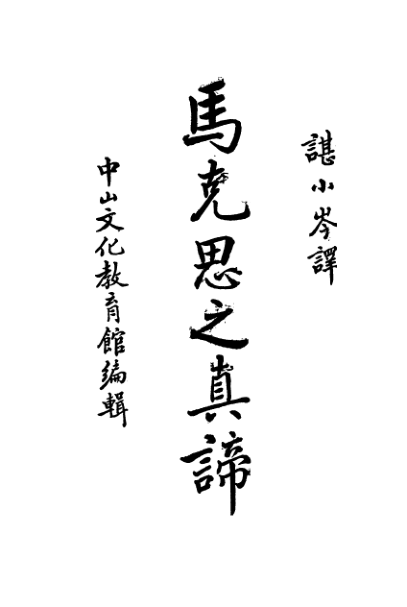 諶小岑譯
馬克思之真諦
中山文化教育館編輯